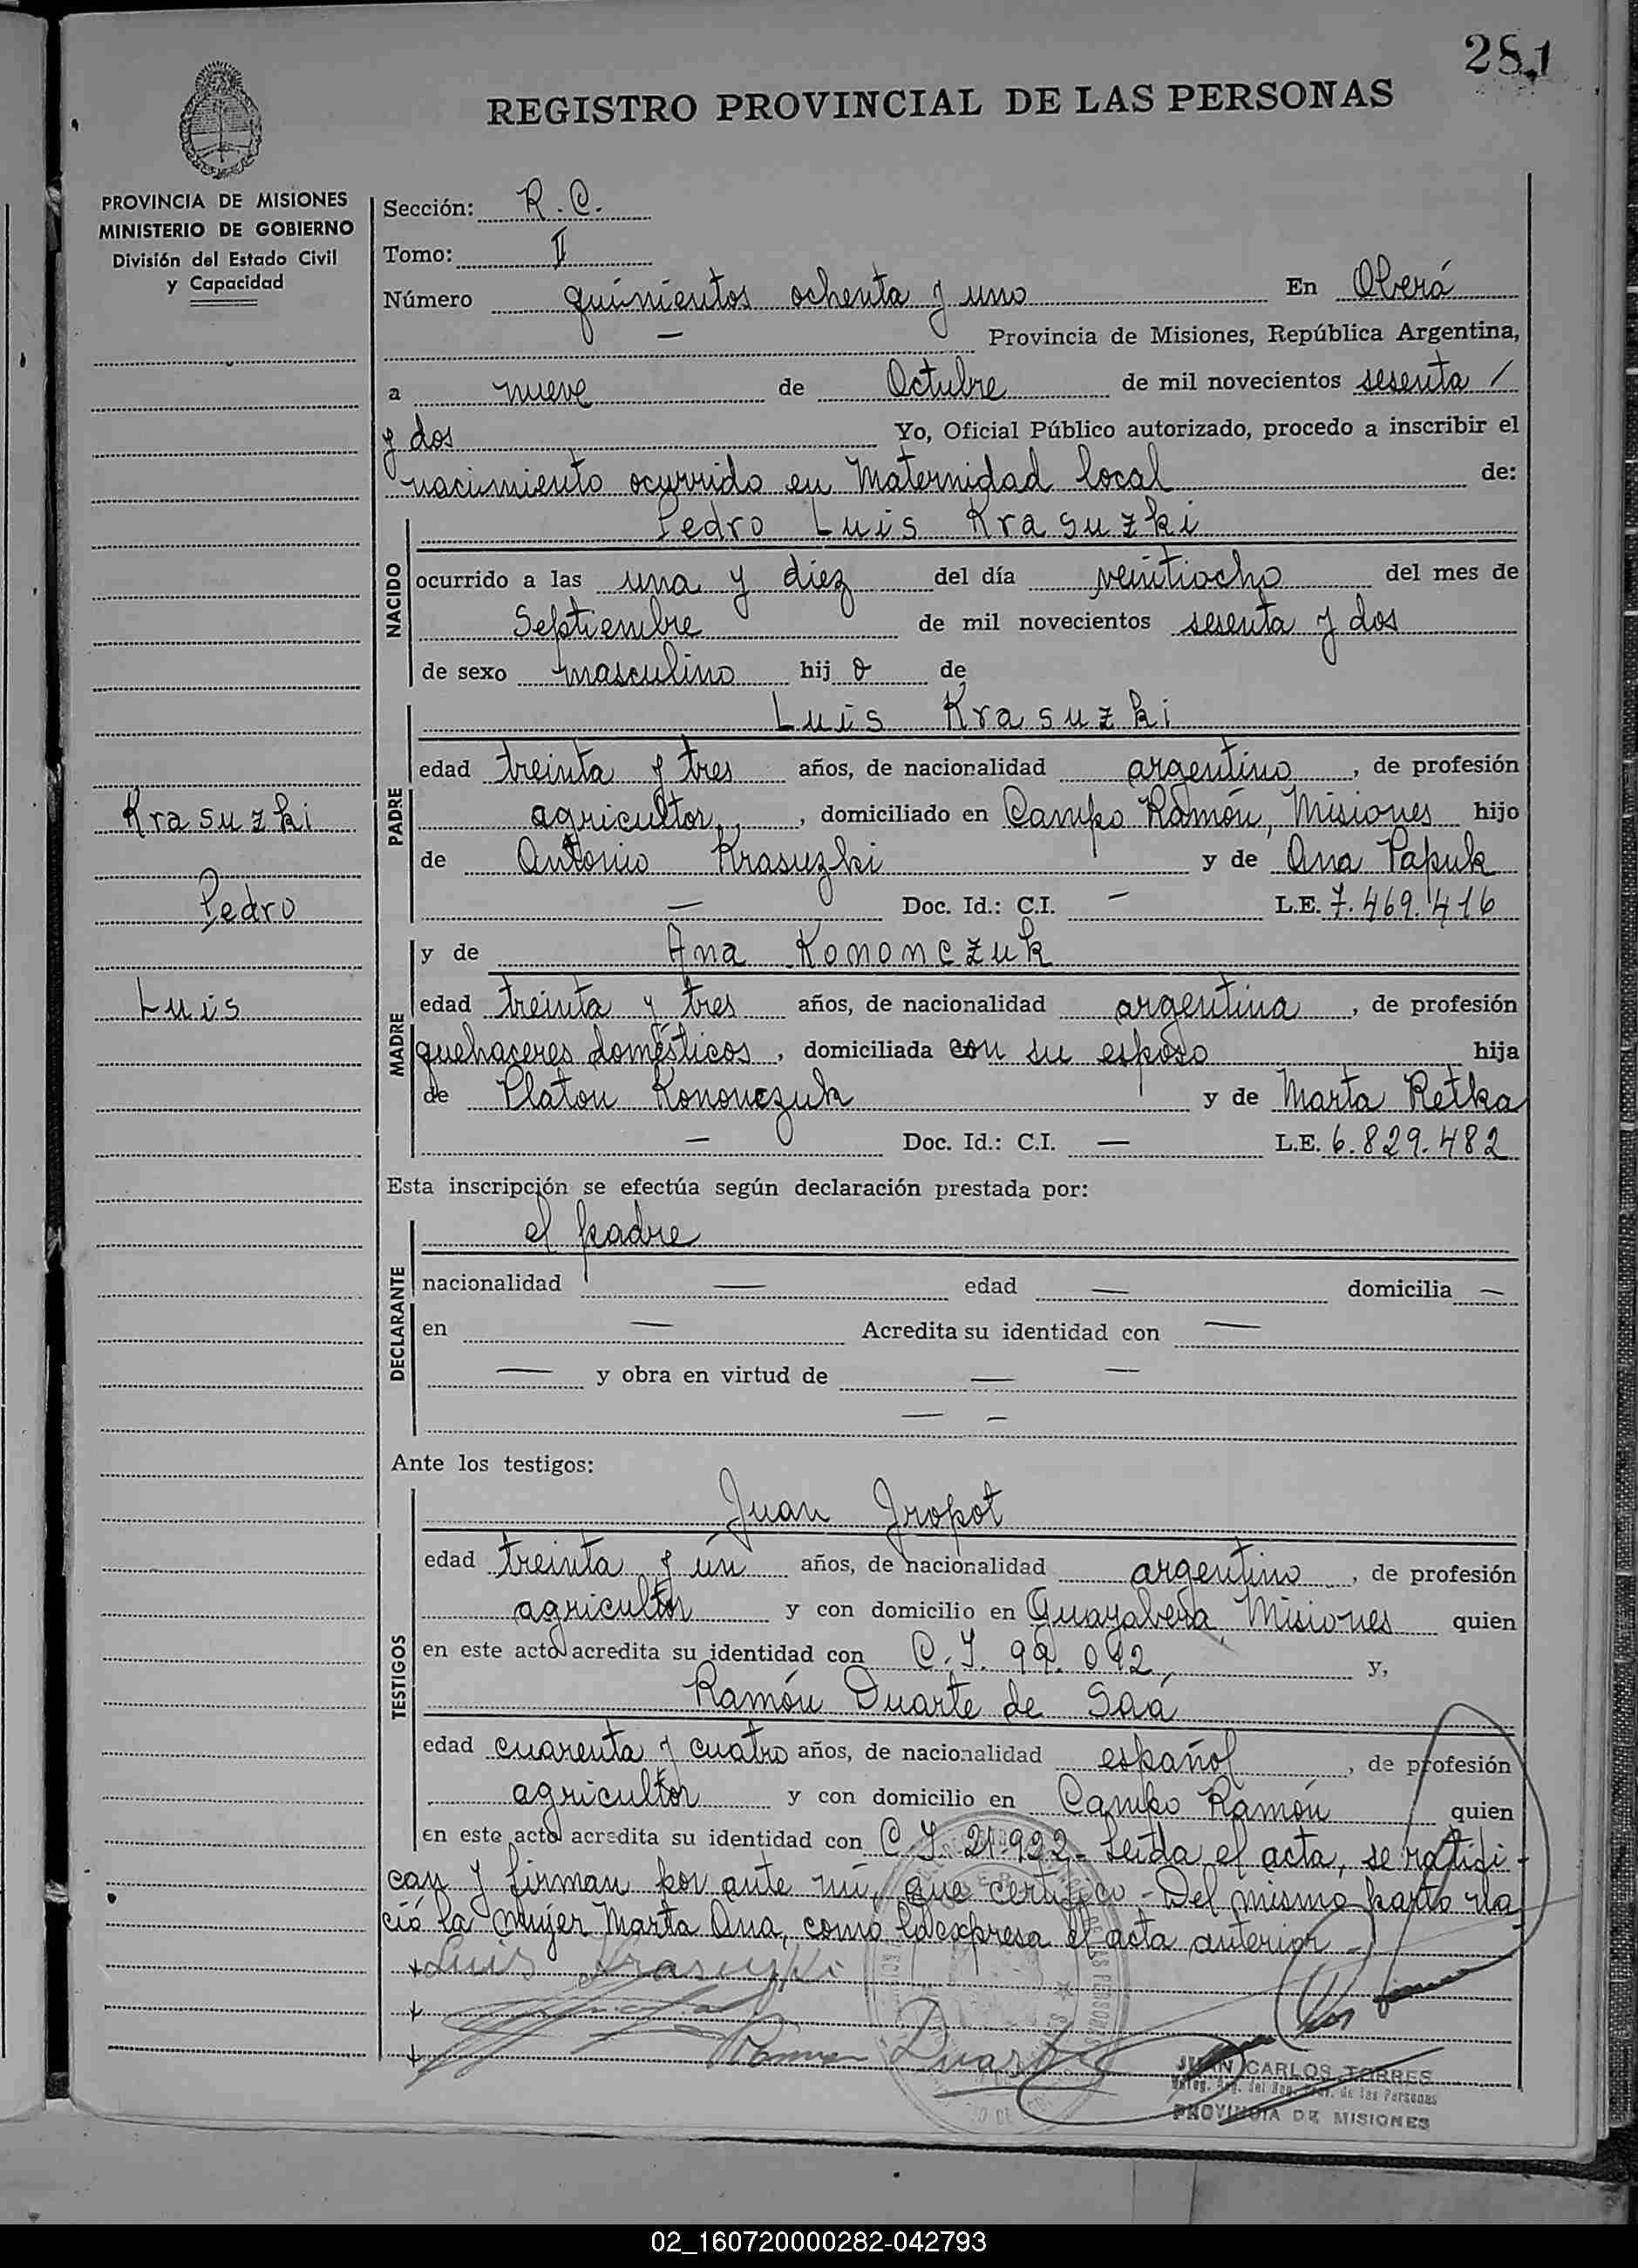 281
REGISTRO PROVINCIAL DE LAS PERSONAS
PROVINCIA DE MISIONES
MINISTERIO DE GOBIERNO
División del Estado Civil
y Capacidad
Sección: R. C.
Tomo: II
Número quinientos ochenta y uno En Oberá
— Provincia de Misiones, República Argentina,
a nueve de Octubre de mil novecientos sesenta /
y dos Yo, Oficial Público autorizado, procedo a inscribir el
nacimiento ocurrido en Maternidad local de:
NACIDO
Pedro Luis Krasuzki
ocurrido a las una y diez del día veintiocho del mes de
Septiembre de mil novecientos sesenta y dos
de sexo masculino hijo de
PADRE
Luis Krasuzki
edad treinta y tres años, de nacionalidad argentino, de profesión
agricultor, domiciliado en Campo Ramón, Misiones hijo
de Antonio Krasuzki y de Ana Papuk
— Doc. Id.: C.I. — L.E. 7.469.416
Krasuzki
Pedro
Luis
MADRE
y de Ana Kononczuk
edad treinta y tres años, de nacionalidad argentina, de profesión
quehaceres domésticos, domiciliada con su esposo hija
de Platon Kononczuk y de Marta Retka
— Doc. Id.: C.I. — L.E. 6.829.482
Esta inscripción se efectúa según declaración prestada por:
DECLARANTE
el padre
nacionalidad — edad — domicilia —
en — Acredita su identidad con —
— y obra en virtud de — —
— —
Ante los testigos:
TESTIGOS
Juan Jropot
edad treinta y un años, de nacionalidad argentino, de profesión
agricultor y con domicilio en Guayabera, Misiones quien
en este acto acredita su identidad con C. I. 99.042 y,
Ramón Duarte de Saá
edad cuarenta y cuatro años, de nacionalidad español, de profesión
agricultor y con domicilio en Campo Ramón quien
en este acto acredita su identidad con C. I. 21.922- Leída el acta, se ratifi-
can y firman por ante mí, que certifico - Del mismo parto na
ció la mujer Marta Ana, como lo expresa el acta anterior -
Luis Krasuzki
Ramon Duarte
JUAN CARLOS TORRES
de las Personas
PROVINCIA DE MISIONES
02_160720000282-042793